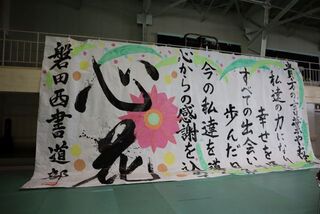 貴方の
私達の力になり
幸せを
すべての出会い
歩んだ
今の私達を
心からの感謝を込
心花
磐田西書道部